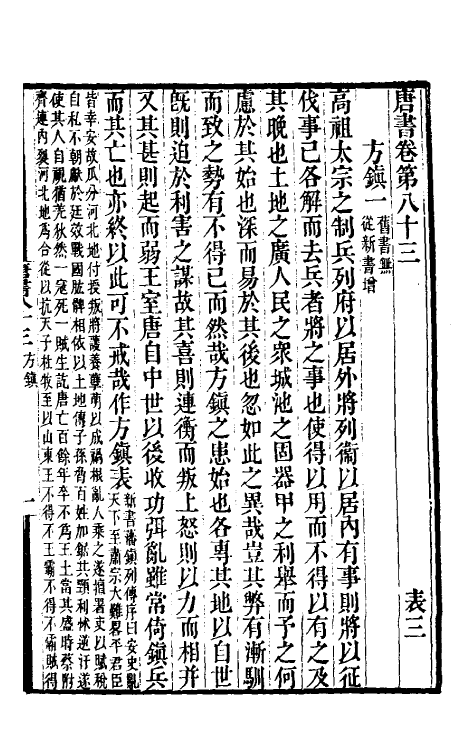 唐書卷第八十三　表三
方鎮一
舊書無
從新書增
高祖太宗之制兵列府以居外將列衛以居內有事則將以征
伐事已各解而去兵者將之事也使得以用而不得以有之及
其晚也土地之廣人民之衆城池之固器甲之利舉而予之何
慮於其始也深而易於其後也忽如此之異哉豈其弊有漸馴
而致之勢有不得已而然哉方鎮之患始也各專其地以自世
旣則迫於利害之謀故其喜則連衡而叛上怒則以力而相并
又其甚則起而弱王室唐自中世以後收功弭亂雖常倚鎮兵
而其亡也亦終以此可不戒哉作方鎮表
新書藩鎮列傳序曰安史亂
天下至肅宗大難畧平君臣
皆幸安故瓜分河北地付授叛將護養孽萌以成禍根亂人乘之遂擅署吏以賦稅
自私不朝獻於廷效戰國肱髀相依以土地傳子孫脅百姓加鋸其頸利怵逆汙遂
使其人自視猶羌狄然一寇死一賊生訖唐亡百餘年卒不爲王土當其盛時蔡附
齊連內裂河北地爲合從以抗天子杜牧至以山東王不得不王霸不得不霸賊得
唐書八十三　方鎮　一